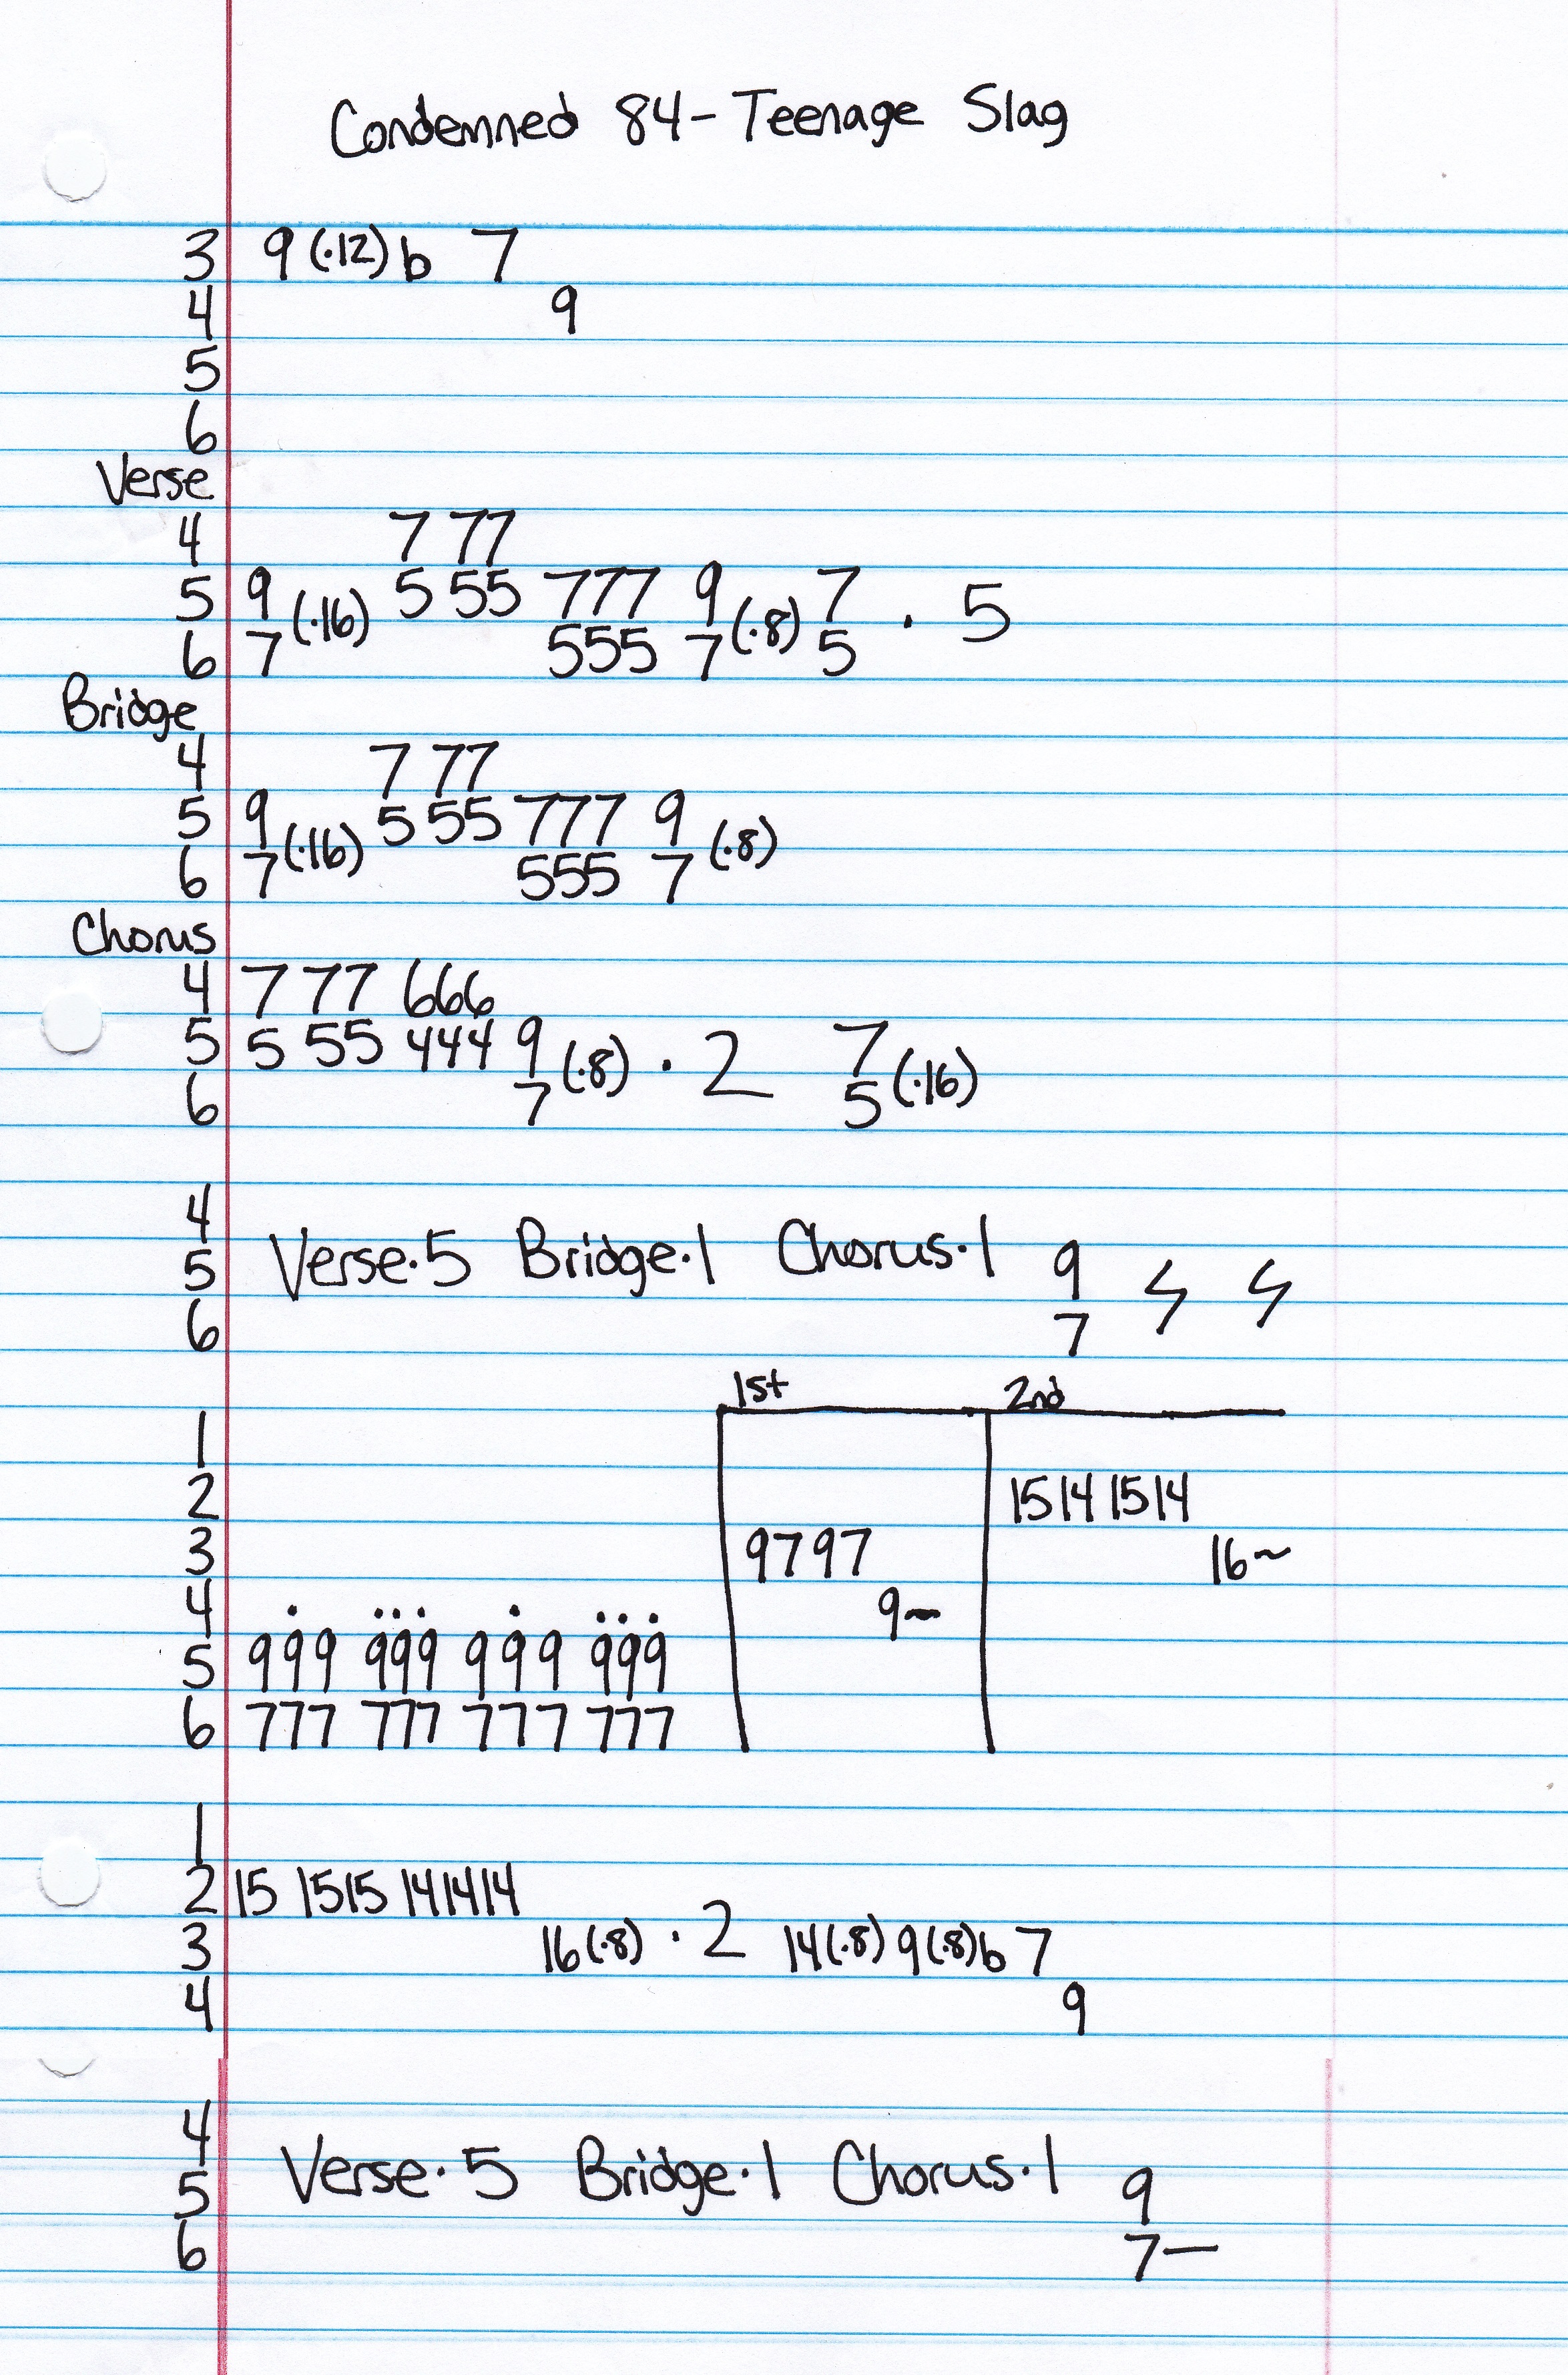 Condemned 84 - Teenage Slag
3 9 (·12) b 7
4 9
5
6
Verse
4 7 77
5 9 (·16) 5 55 777 9 (·8) 7 · 5
6 7 555 7 5
Bridge
4 7 77
5 9 5 55 777 9
6 7 (·16) 555 7 (·8)
Chorus
4 7 77 666
5 5 55 444 9 (·8) · 2 7
6 7 5 (·16)
4
5 Verse·5 Bridge·1 Chorus·1 9
6 7
1st 2nd
1
2 15 14 15 14
3 9797 16~
4 · ··· · ··· 9~
5 999 999 999 999
6 777 777 777 777
1
2 15 1515 141414
3 16(·8) · 2 14(·8) 9(·8)b 7
4 9
4
5 Verse·5 Bridge·1 Chorus·1 9
6 7—